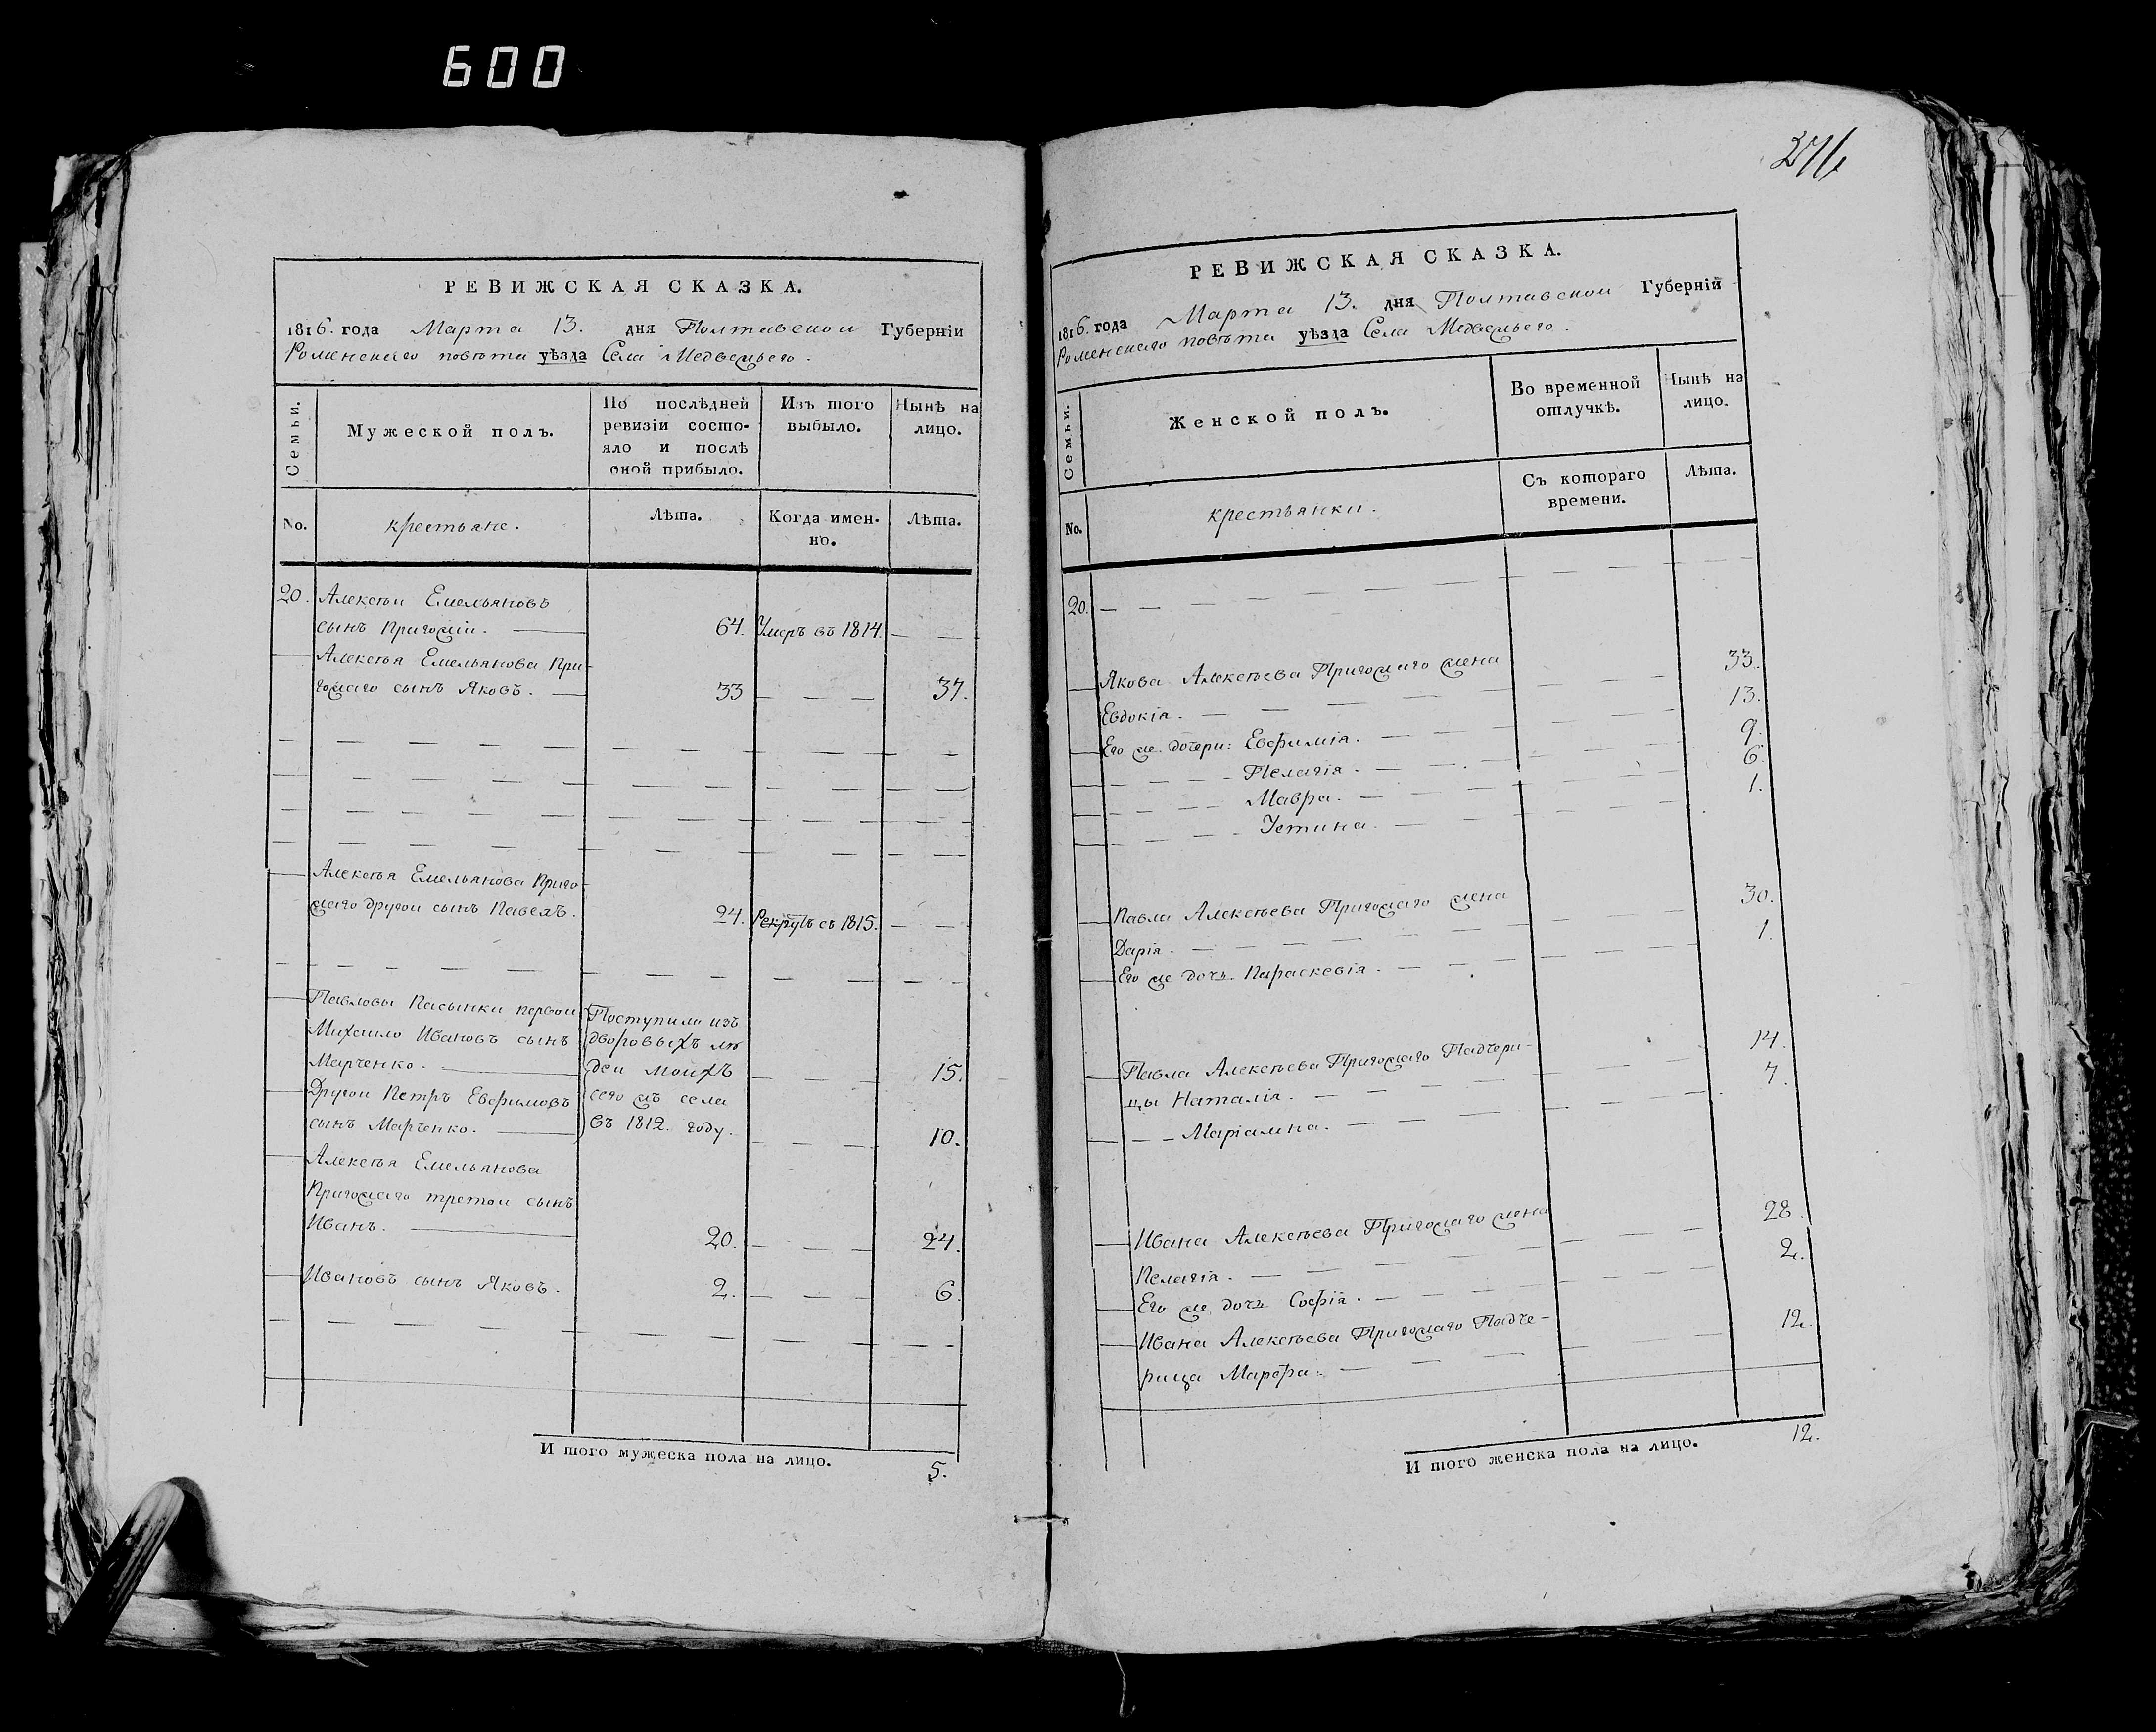 600
РЕВИЖСКАЯ СКАЗКА.
1816. года Марта 13. дня Полтавской Губерніи
Роменскаго повѣта уѣзда Села Медвежьего.
Семьи.
Мужеской полъ.
По послѣдней
ревизіи состо-
яло и послѣ
оной прибыло.
Изъ того
выбыло.
Нынѣ на
лицо.
No.
крестьяне.
Лѣта.
Когда имен-
но.
Лѣта.
20. Алексѣй Емельяновъ
сынъ Пригожій. 64. Умеръ въ 1814.
Алексѣя Емельянова При-
гожаго сынъ Яковъ. 33 37.
Алексѣя Емельянова Приго-
жаго другой сынъ Павелъ. 24. Рекрутъ съ 1815.
Павловы Пасынки первой
Михайло Ивановъ сынъ
Марченко. 15.
Другой Петръ Евфимовъ
сынъ Марченко. 10.
Поступили изъ
дворовыхъ лю
дей моихъ
сего жъ села
въ 1812. году.
Алексѣя Емельянова
Пригожаго третой сынъ
Иванъ. 20. 24.
Ивановъ сынъ Яковъ. 2. 6.
И того мужеска пола на лицо. 5.
РЕВИЖСКАЯ СКАЗКА.
1816. года Марта 13. дня Полтавской Губерніи
Роменскаго повѣта уѣзда Села Медвежьего.
Семьи.
Женской полъ.
Во временной
отлучкѣ.
Нынѣ на
лицо.
No.
крестьянки.
Съ котораго
времени.
Лѣта.
20.
Якова Алексѣева Пригожаго жена
Евдокія. 33.
Его же дочери: Евфимія. 13.
Пелагія. 9.
Мавра. 6.
Устина. 1.
Павла Алексѣева Пригожаго жена
Дарія. 30.
Его же дочь Параскевія. 1.
Павла Алексѣева Пригожаго Падчери-
цы Наталія. 14.
Маріамна. 7.
Ивана Алексѣева Пригожаго жена
Пелагія. 28.
Его же дочь Софія. 2.
Ивана Алексѣева Пригожаго Падче-
рица Марфа. 12.
И того женска пола на лицо. 12.